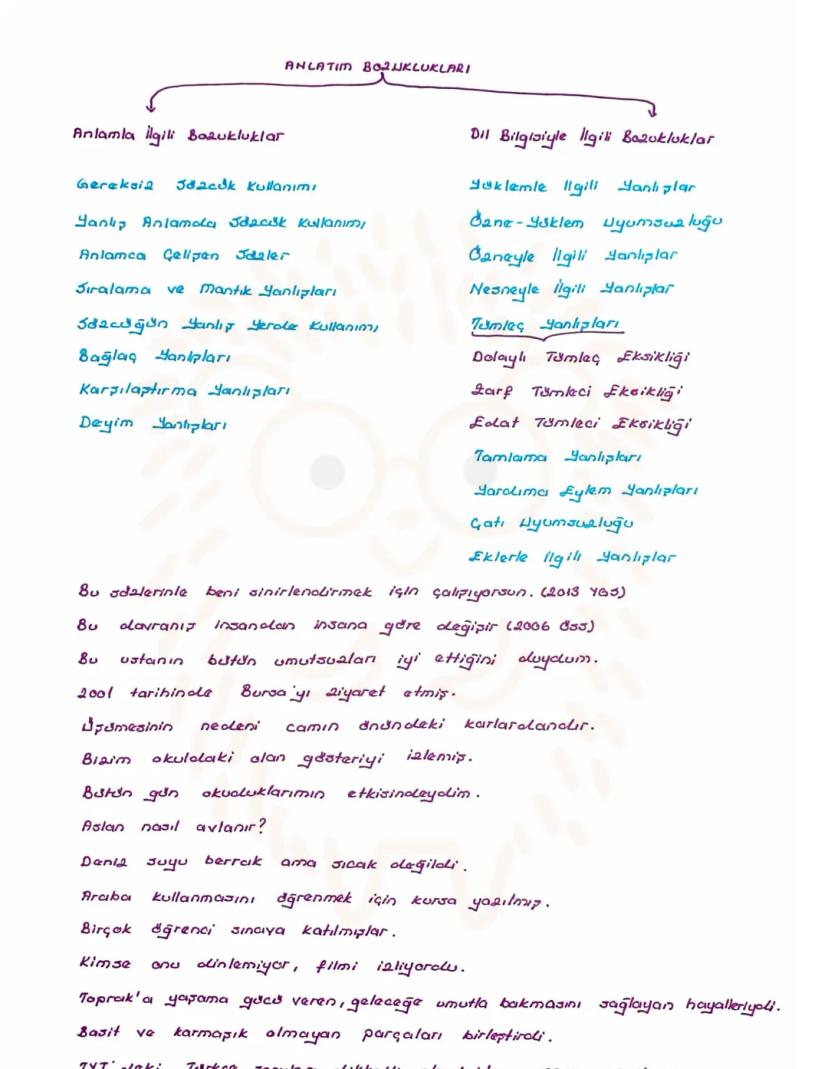 ANLATIM BOZUKLUKLARI
Anlamla İlgili Bozukluklar
Gereksiz Sözcük Kullanımı
Yanlış Anlamda Sözcük Kullanımı
Anlamca Çelişen Sözler
Sıralama ve Mantık Yanlışları
Sözcüğün Yanlış Yerde Kullanımı
Bağlaç Yanlışları
Karşılaştırma Yanlışları
Deyim Yanlışları
Dil Bilgisiyle İlgili Bozukluklar
Yüklemle İlgili Yanlışlar
Özne-Yüklem Uyumsuzluğu
Özneyle İlgili Yanlışlar
Nesneyle İlgili Yanlışlar
Tümleç Yanlışları
Dolaylı Tümleç Eksikliği
Zarf Tümleci Eksikliği
Edat Tümleci Eksikliği
Tamlama Yanlışları
Yardımcı Eylem Yanlışları
Çatı Uyumsuzluğu
Eklerle İlgili Yanlışlar
Bu sözlerinle beni sinirlendirmek için çalışıyorsun. (2013 YGS)
Bu davranış insandan insana göre değişir (2006 ÖSS)
Bu ustanın bütün umutsuzları iyi ettiğini duydum.
2001 tarihinde Bursa'yı ziyaret etmiş.
Üşümesinin nedeni camın önündeki karlardandır.
Bizim okuldaki olan gösteriyi izlemiş.
Bütün gün okuduklarımın etkisindeydim.
Aslan nasıl avlanır?
Deniz suyu berrak ama sıcak değildi.
Araba kullanmasını öğrenmek için kursa yazılmış.
Birçok öğrenci sınava katılmışlar.
Kimse onu dinlemiyor, filmi izliyordu.
Toprak'a yaşama gücü veren, geleceğe umutla bakmasını sağlayan hayalleriydi.
Basit ve karmaşık olmayan parçaları birleştirdi.
TYT'deki Türkçe